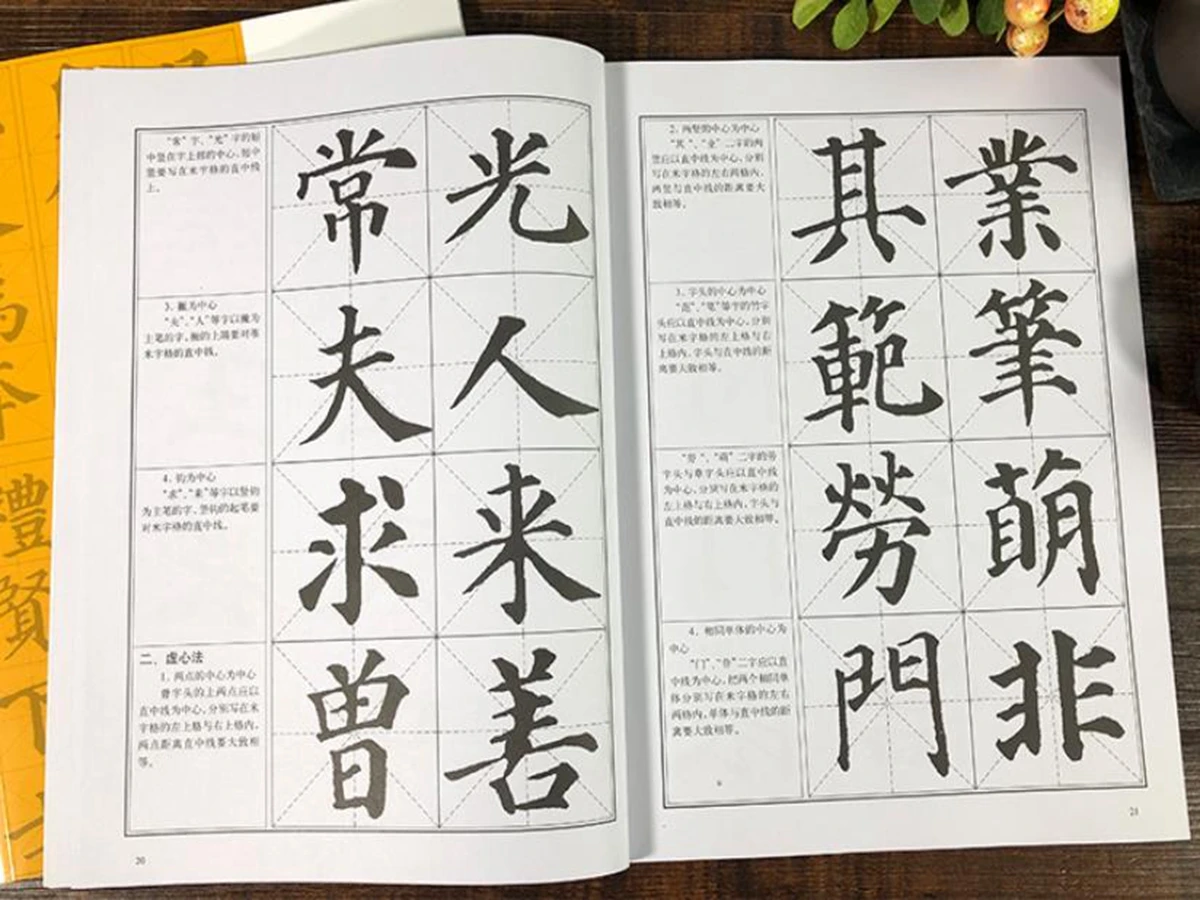 “常”字、“光”字的短
中竖在字上部的中心，短中
竖要写在米字格的直中线
上。
常光
3. 撇为中心
“夫”、“人”等字以撇为
主笔的字，撇的上端要对准
米字格的直中线。
夫人
4. 钩为中心
“求”、“来”等字以竖钩
为主笔的字，竖钩的起笔要
对米字格的直中线。
求来
二、虚心法
1. 两点的中心为中心
曾字头的上两点应以
直中线为中心，分别写在米
字格的左上格与右上格内，
两点距离直中线要大致相
等。
曾善
20
2. 两竖的中心为中心
“其”、“业”二字的两
竖应以直中线为中心，分别
写在米字格的左右两格内，
两竖与直中线的距离要大
致相等。
其業
3. 字头的中心为中心
“范”、“笔”等字的竹字
头应以直中线为中心，分别
写在米字格的左上格与右
上格内，字头与直中线的距
离要大致相等。
範筆
“劳”、“萌”二字的劳
字头与草字头应以直中线
为中心，分别写在米字格的
左上格与右上格内，字头与
直中线的距离要大致相等。
勞萌
4. 相同单体的中心为
中心
“门”、“非”二字应以直
中线为中心，把两个相同单
体分别写在米字格的左右
两格内，单体与直中线的距
离要大致相等。
門非
21
禮
賢
下